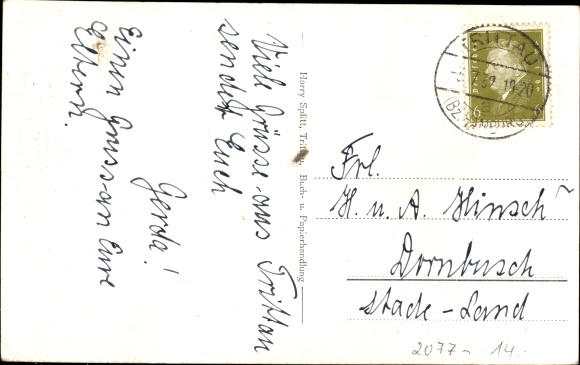 Viele Grüsse aus Trittau
sendet Euch
Gerda!
Einen Gruss an Eure
Eltern.
Harry Splitt, Trittau, Buch- u. Papierhandlung
TRITTAU
32.19-20
(Bz.
6
Frl.
H. u. A. Hinsch
Dornbusch
Stade-Land
2077- 14.-